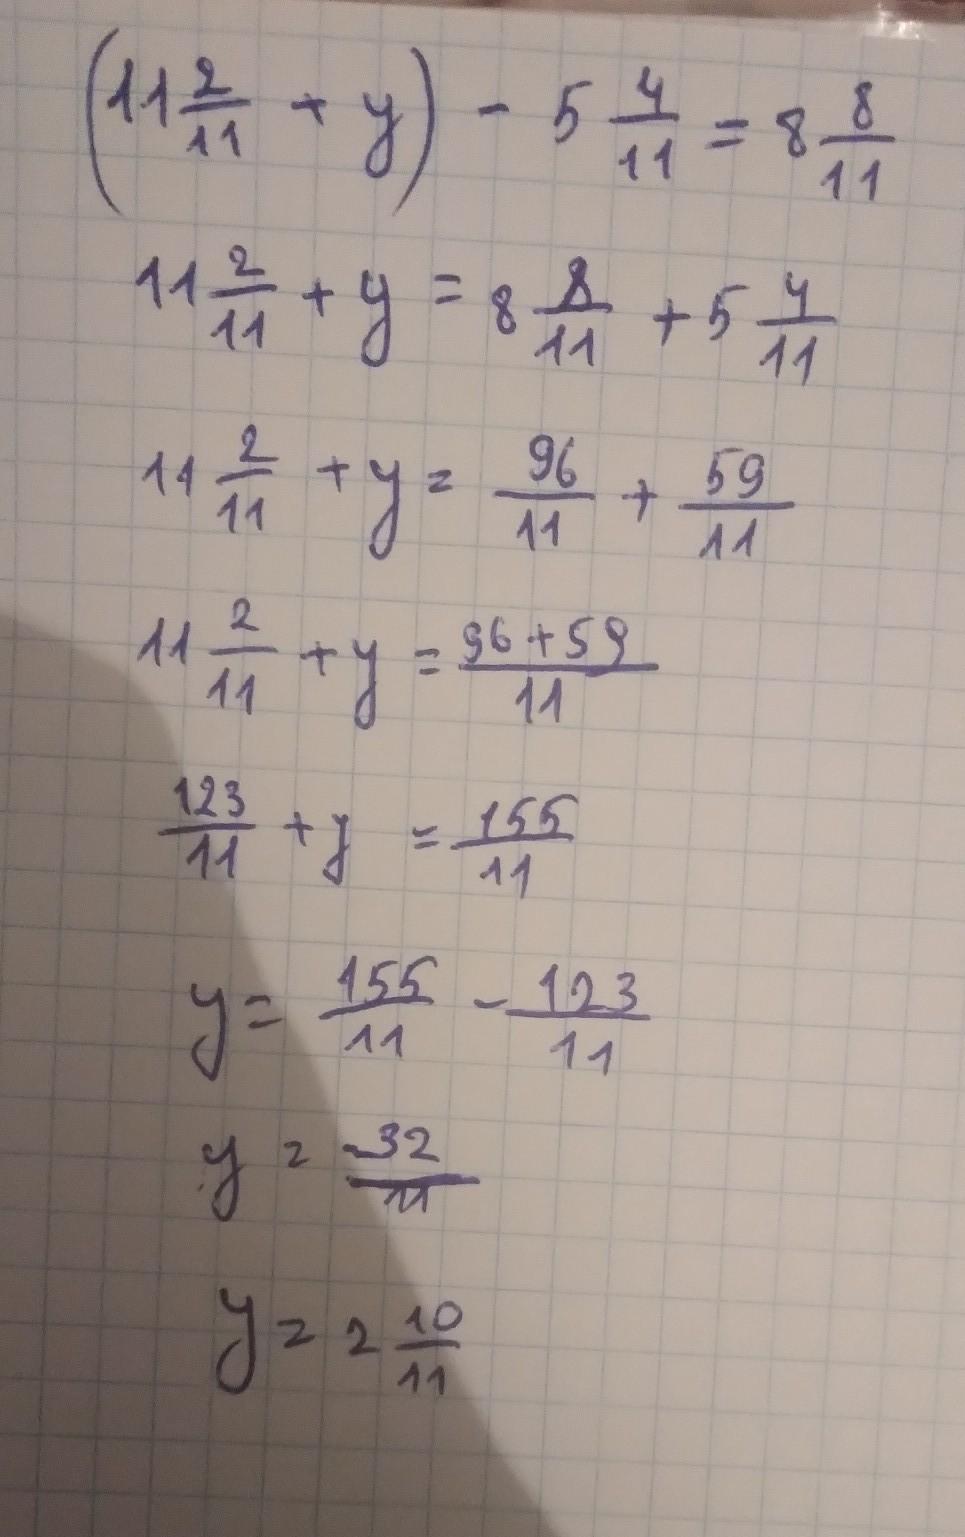 (11 2/11 + y) - 5 4/11 = 8 8/11
11 2/11 + y = 8 8/11 + 5 4/11
11 2/11 + y = 96/11 + 59/11
11 2/11 + y = (96+59)/11
123/11 + y = 155/11
y = 155/11 - 123/11
y = 32/11
y = 2 10/11